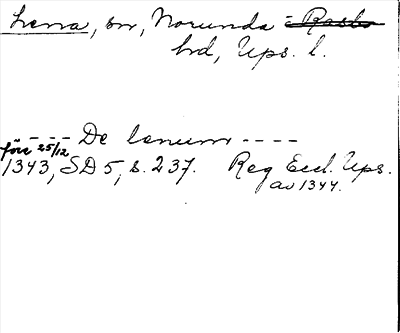 Lena, sn, Norunda
hrd, Ups. l.
---- De lenum ----
före 25/12
1343, SD 5, s. 237. Reg Eccl. Ups.
av 1344.